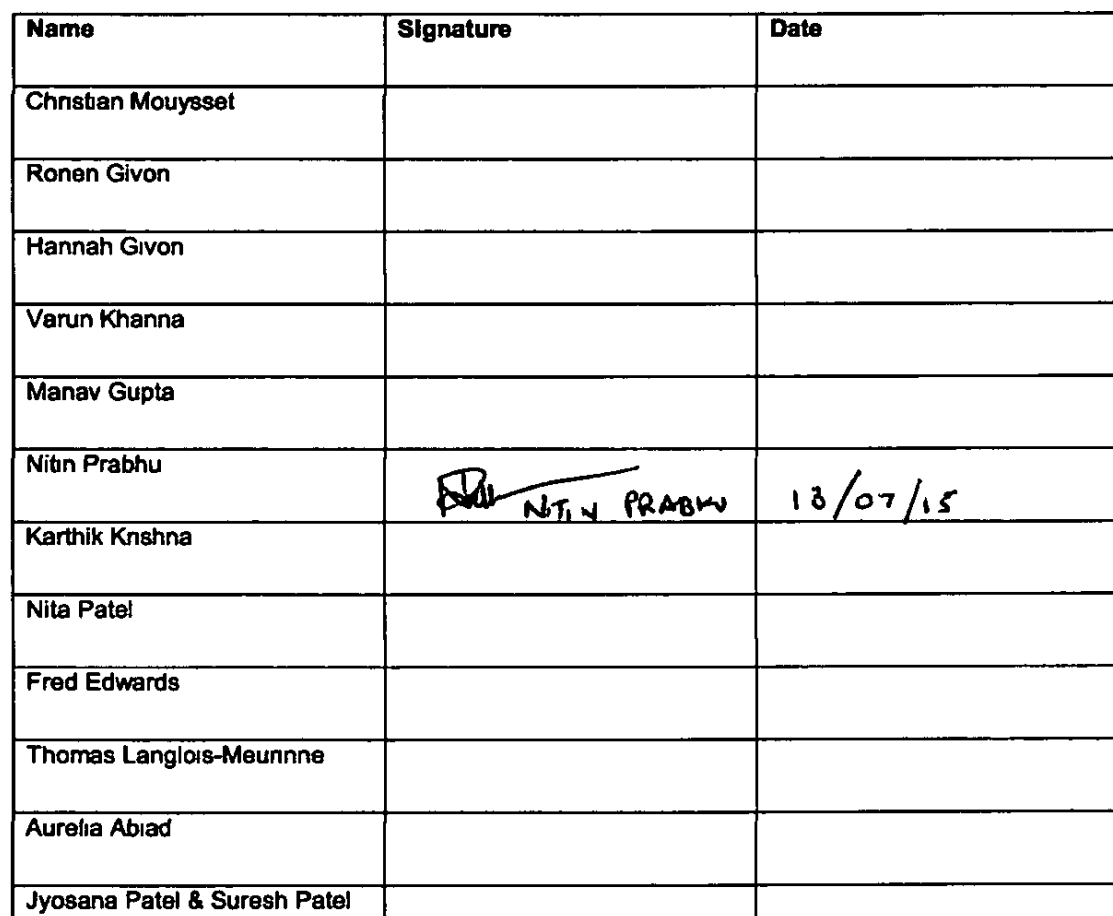 Name Signature Date
Christian Mouysset
Ronen Givon
Hannah Givon
Varun Khanna
Manav Gupta
Nitin Prabhu
NITIN PRABHU 13/07/15
Karthik Krishna
Nita Patel
Fred Edwards
Thomas Langlois-Meurinne
Aurelia Abiad
Jyosana Patel & Suresh Patel